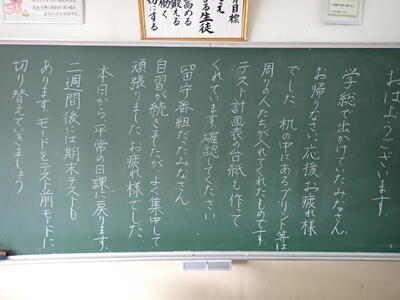 おはようございます。
学総で出かけていたみなさん、
お帰りなさい、応援、お疲れ様
でした。机の中にあるプリント等は
周りの人たちが入れてくれたものです。
テスト計画表の台紙も作って
くれています。確認してください。
留守番組だったみなさん、
自習が続きましたが、よく集中して
頑張りました。お疲れ様でした。
本日から、平常の日課に戻ります。
二週間後には期末テストも
あります。モードをテスト前モードに
切り替えていきましょう
目標
える生徒
高める
鍛える
働く
切にする